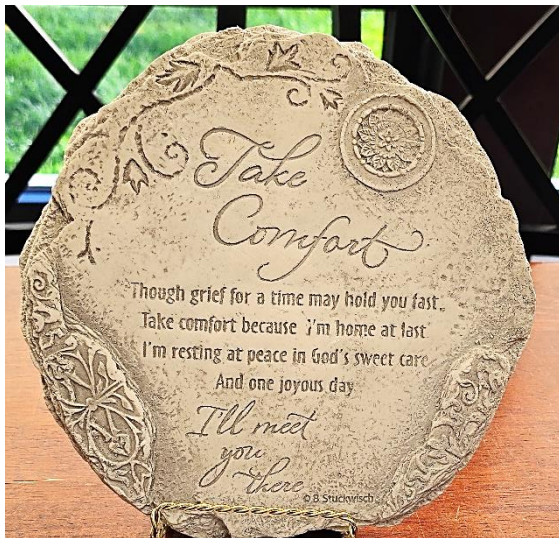 Take
Comfort
Though grief for a time may hold you fast
Take comfort because i'm home at last
I'm resting at peace in God's sweet care
And one joyous day
I'll meet
you
there
© B Stuckwisch